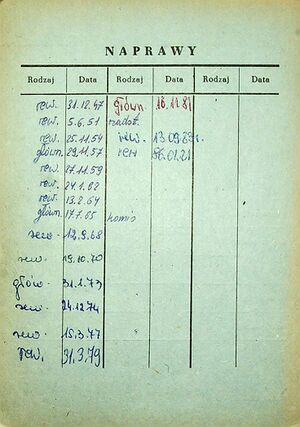 NAPRAWY
Rodzaj Data Rodzaj Data Rodzaj Data
rew. 31.12.47 główn. 16.11.81
rew. 5.6.51
rew. 25.11.54 rew.
główn. 29.11.57 rew
rew. 27.11.59
rew. 24.1.62
rew. 13.2.64
główn. 17.7.65
rew. 12.9.68
rew. 19.10.70
główn. 31.1.73
rew. 24.12.74
rew. 15.3.77
rew. 31.3.79